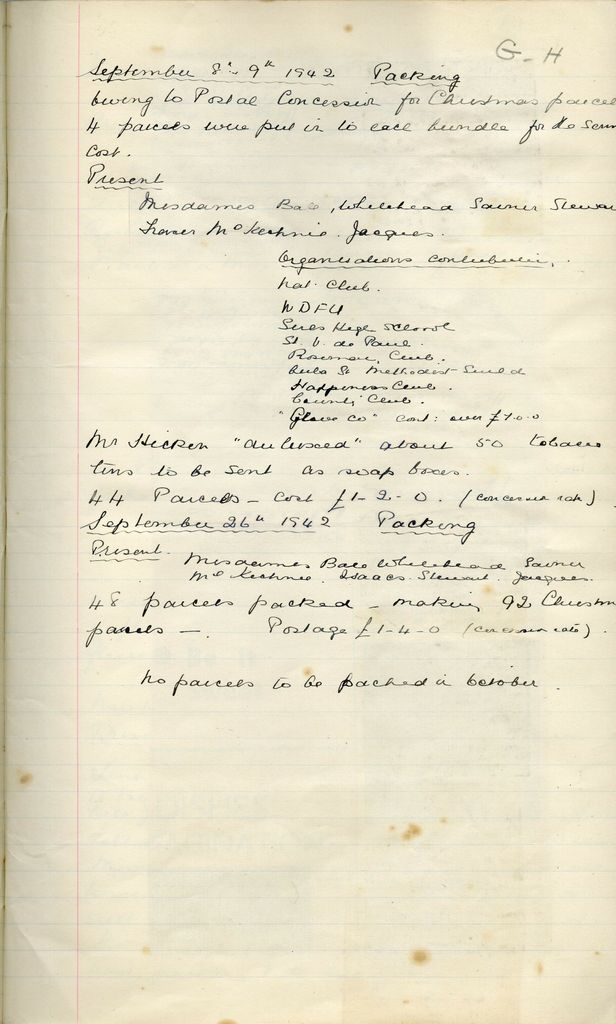 G-H
September 8th - 9th 1942 Packing
Owing to Postal Concession for Christmas parcel
4 parcels were put in to each bundle for the same
cost.
Present
Mesdames Bale, Whitehead Stewar
Fraser McKechnie. Jacques.
Organisations contributing.
Nat. Club.
WDFU
High School
St. V. de Paul.
Club.
St Methodist Guild
Happiness Club.
County Club.
"Glove Co" cont: over £7.0.0
Mr Hicken about 50 tobacco
tins to be sent as soap boxes.
44 Parcels - Cost £1-2-0. (concession rate)
September 26th 1942 Packing
Present. Mesdames Bale Whitehead
McKechnie. Isaacs. Stewart. Jacques.
48 parcels packed - making 92 Christm
parcels -. Postage £1-4-0 (concession rate).
No parcels to be packed in October.